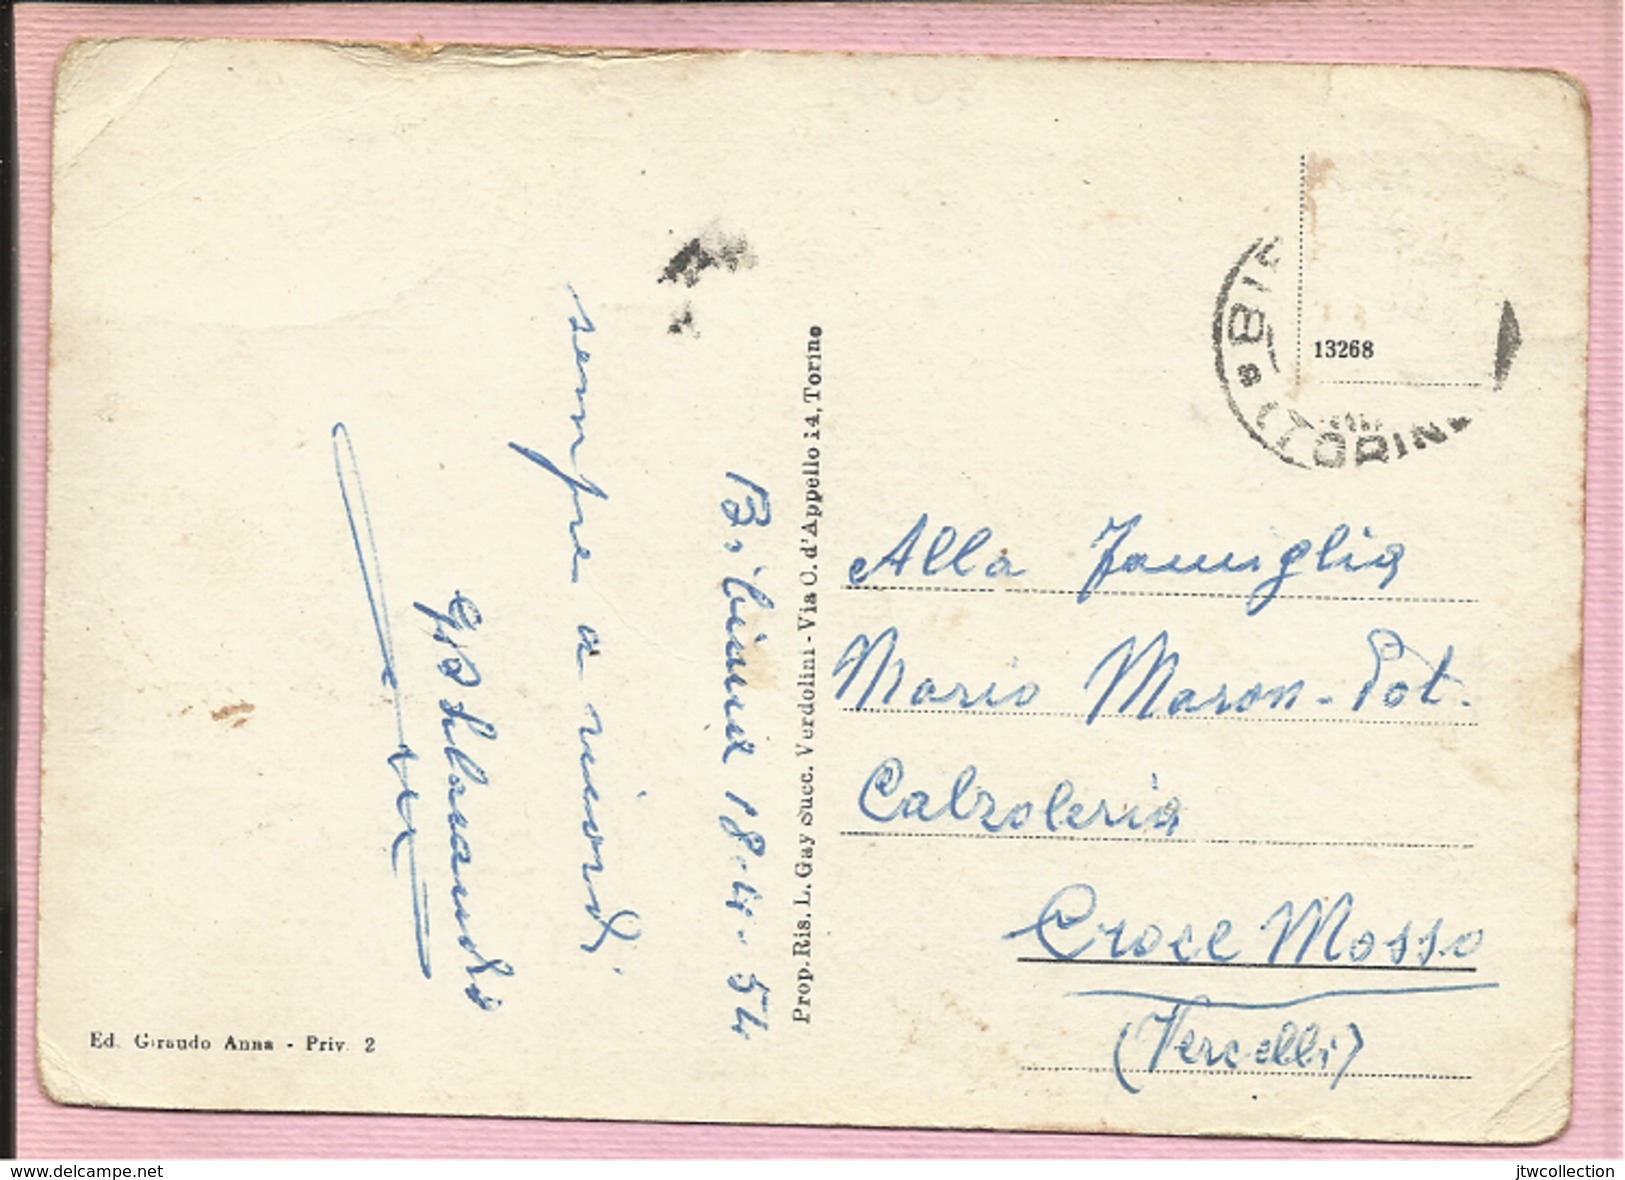 Bibiana 18-4-54
sempre a ricordi
Prop. Ris. L. Gay Succ. Verdolini - Via C. d'Appello 14, Torino
Ed. Giraudo Anna - Priv. 2
13268
(TORINO)
Alla Famiglia
Mario Maron-Pot.
Calzoleria
Croce Mosso
(Vercelli)
www.delcampe.net
jtwcollection